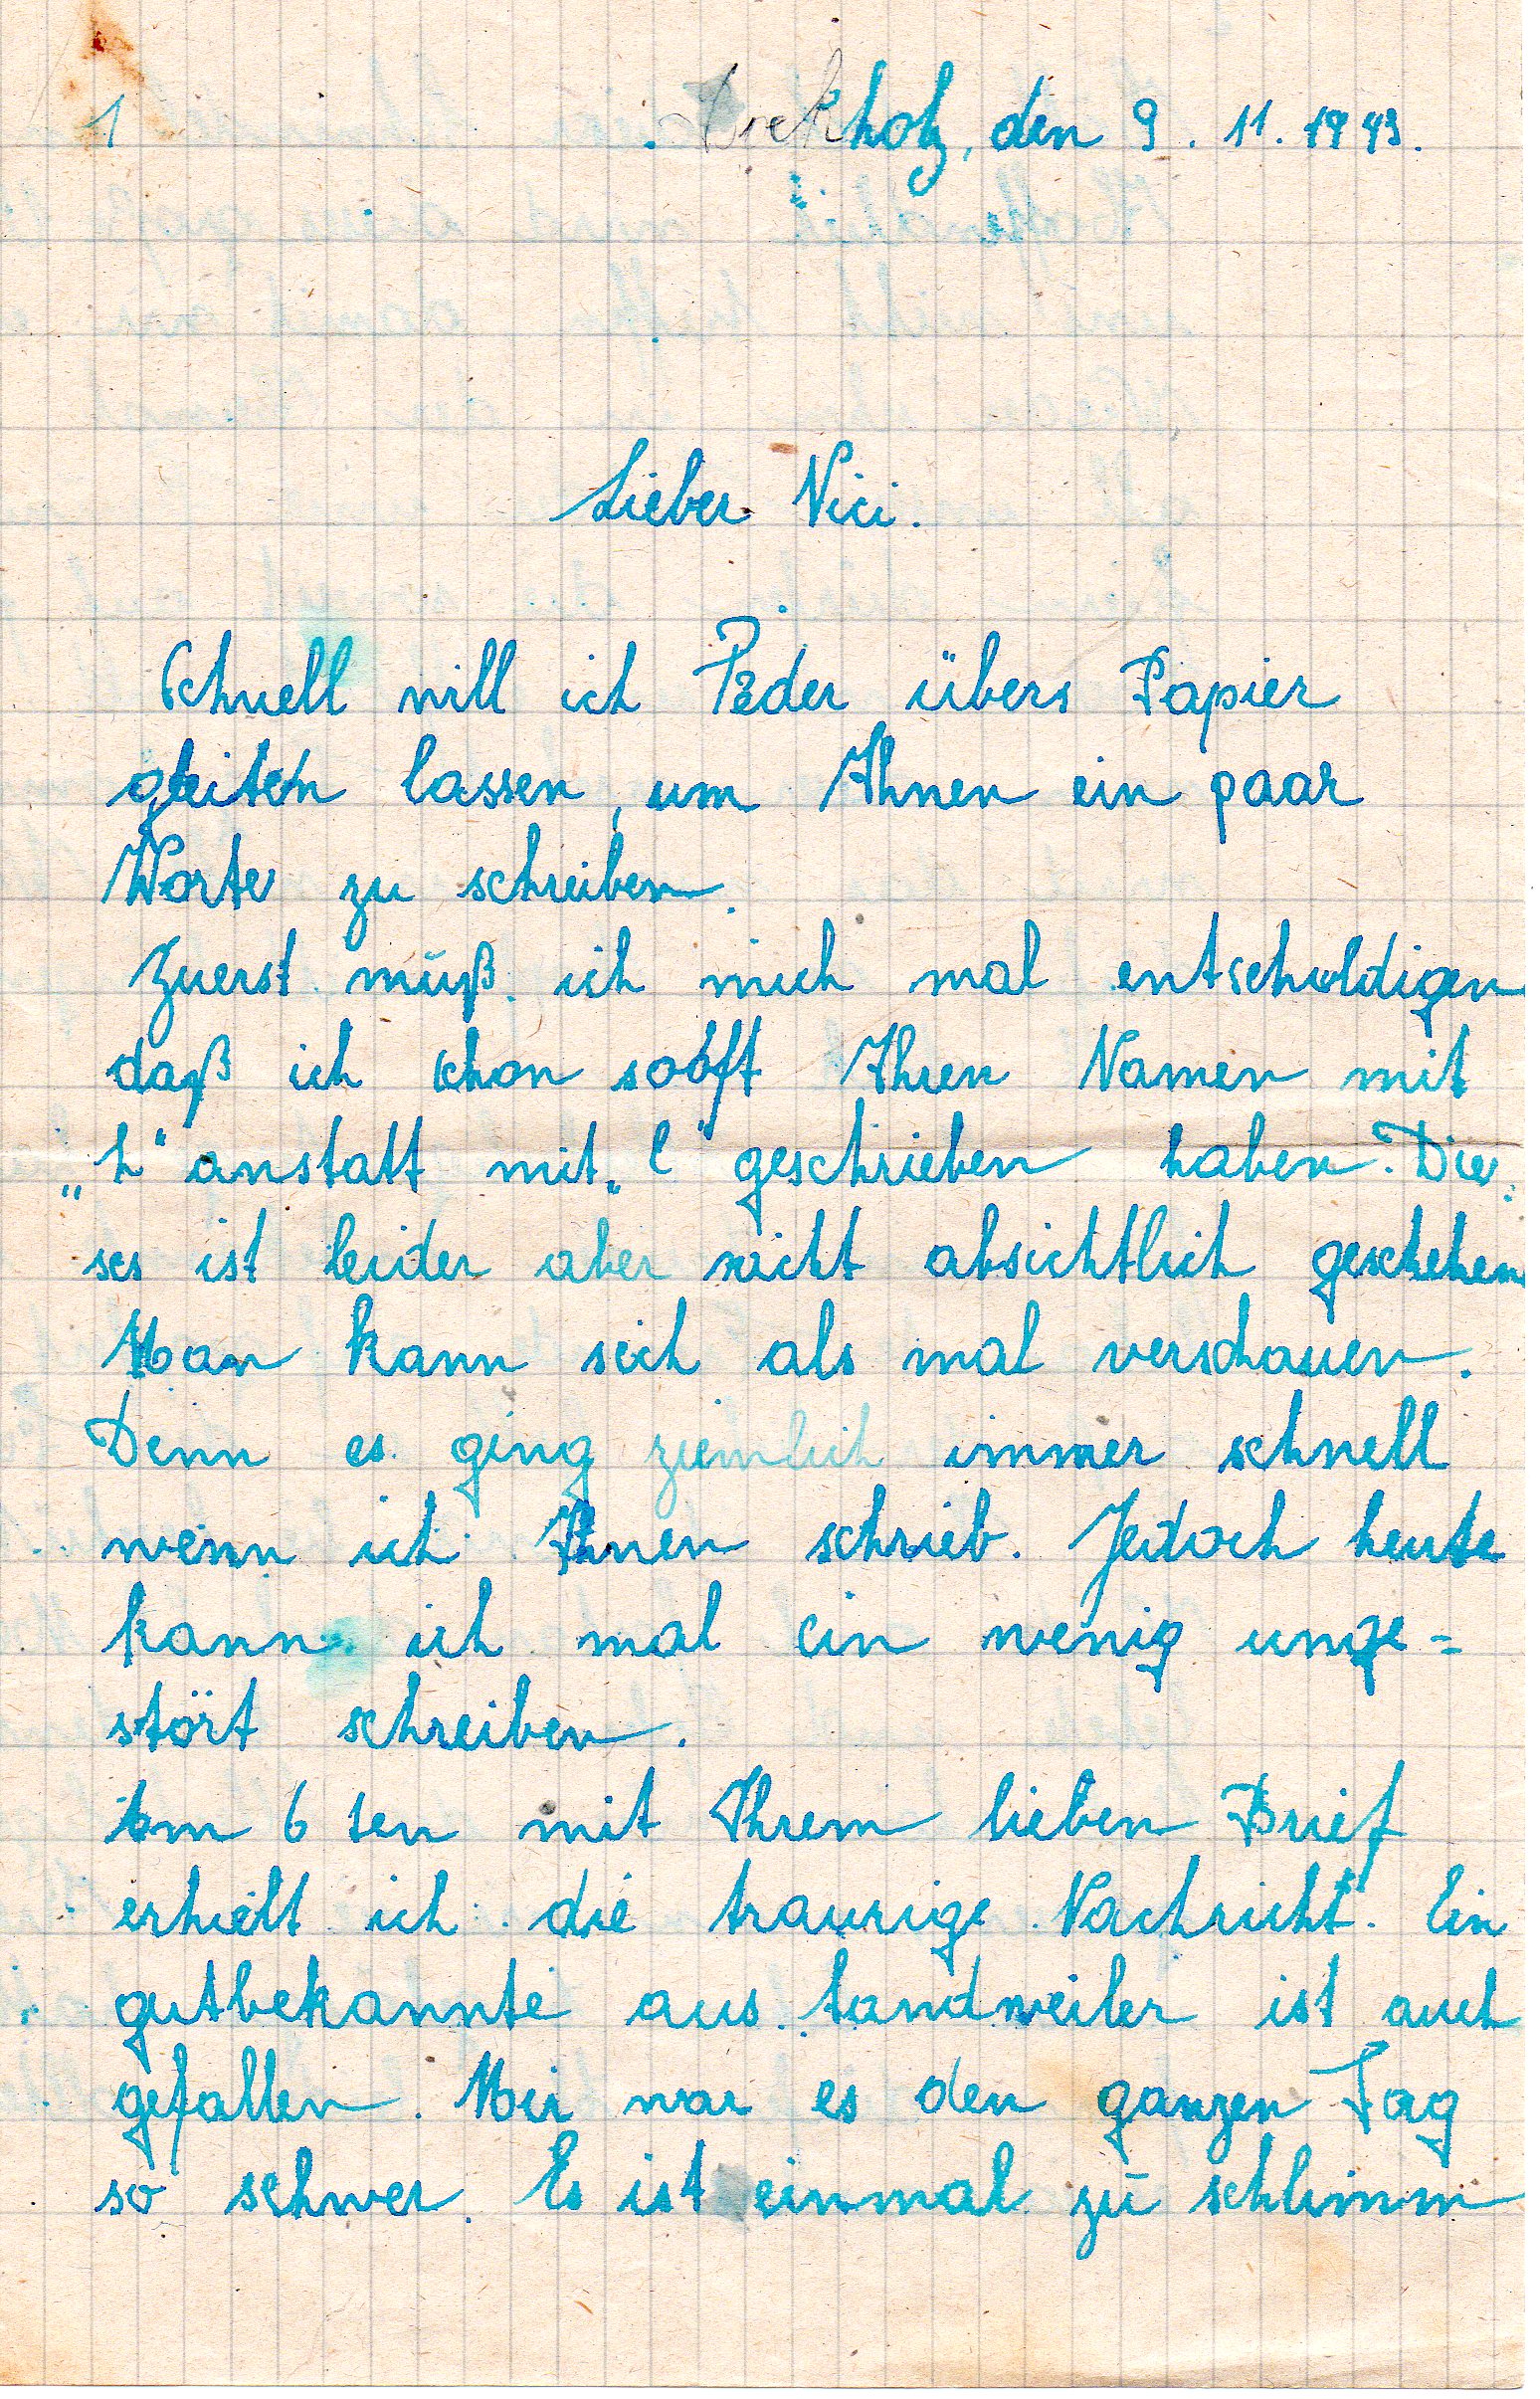 1
holz, den 9. 11. 1943.
Lieber Vici.
Schnell will ich Feder übers Papier
gleiten lassen, um Ihnen ein paar
Worte zu schreiben.
Zuerst muß ich mich mal entschuldigen
daß ich schon sooft Ihren Namen mit
„h" anstatt mit „l" geschrieben haben. Die-
ses ist leider aber nicht absichtlich geschehen
Man kann sich als mal verschauen.
Denn es ging ziemlich immer schnell
wenn ich Ihnen schrieb. Jedoch heute
kann ich mal ein wenig unge=
stört schreiben.
Am 6 ten mit Ihrem lieben Brief
erhielt ich die traurige Nachricht. Ein
gutbekannte aus Landweiler ist auch
gefallen. Mir war es den ganzen Tag
so schwer. Es ist einmal zu schlimm